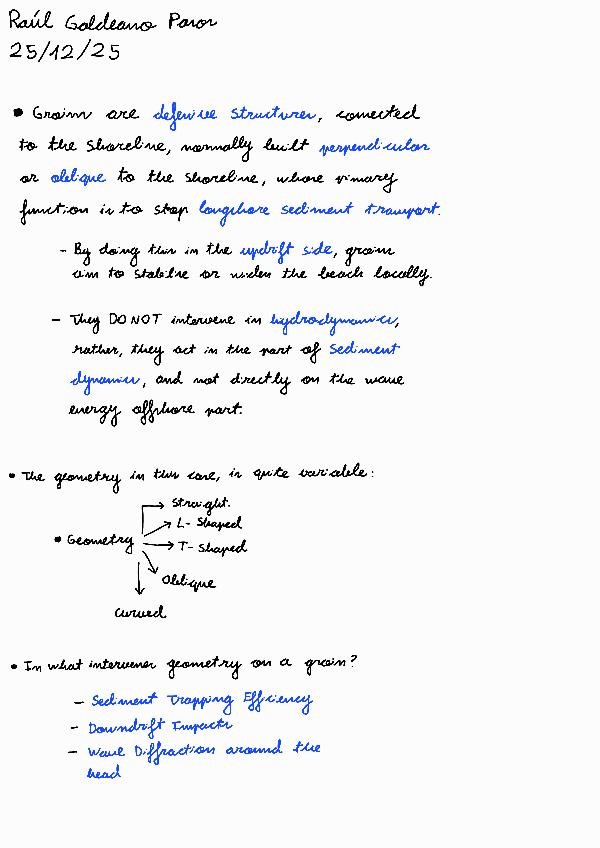 Raúl Galdeano Pavor
25/12/25
• Groins are defensive structures, connected
to the shoreline, normally built perpendicular
or oblique to the shoreline, whose primary
function is to stop longshore sediment transport.
- By doing this in the updrift side, groins
aim to stabilise or widen the beach locally.
- They DO NOT intervene in hydrodynamics,
rather, they act in the part of sediment
dynamics, and not directly on the wave
energy offshore part.
• The geometry in this case, is quite variable:
→ Straight.
→ L-Shaped
• Geometry → T-Shaped
Oblique
curved
• In what intervenes geometry on a groin?
- Sediment Trapping Efficiency
- Downdrift Impacts
- Wave Diffraction around the
head